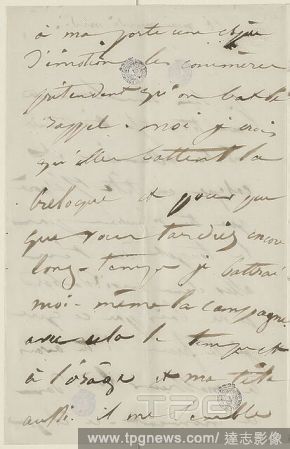 à ma porte une espèce
d'émotion les commères
prétendent qu'on bat le
rappel - moi je crois
qu'elles battent la
breloque et pour peu
que vous tardiez encore
long-temps je battrai
moi-même la campagne.
avec cela le temps est
à l'orage et ma tête
aussi. il me semble
TPG
www.tpgnews.com / 達志影像